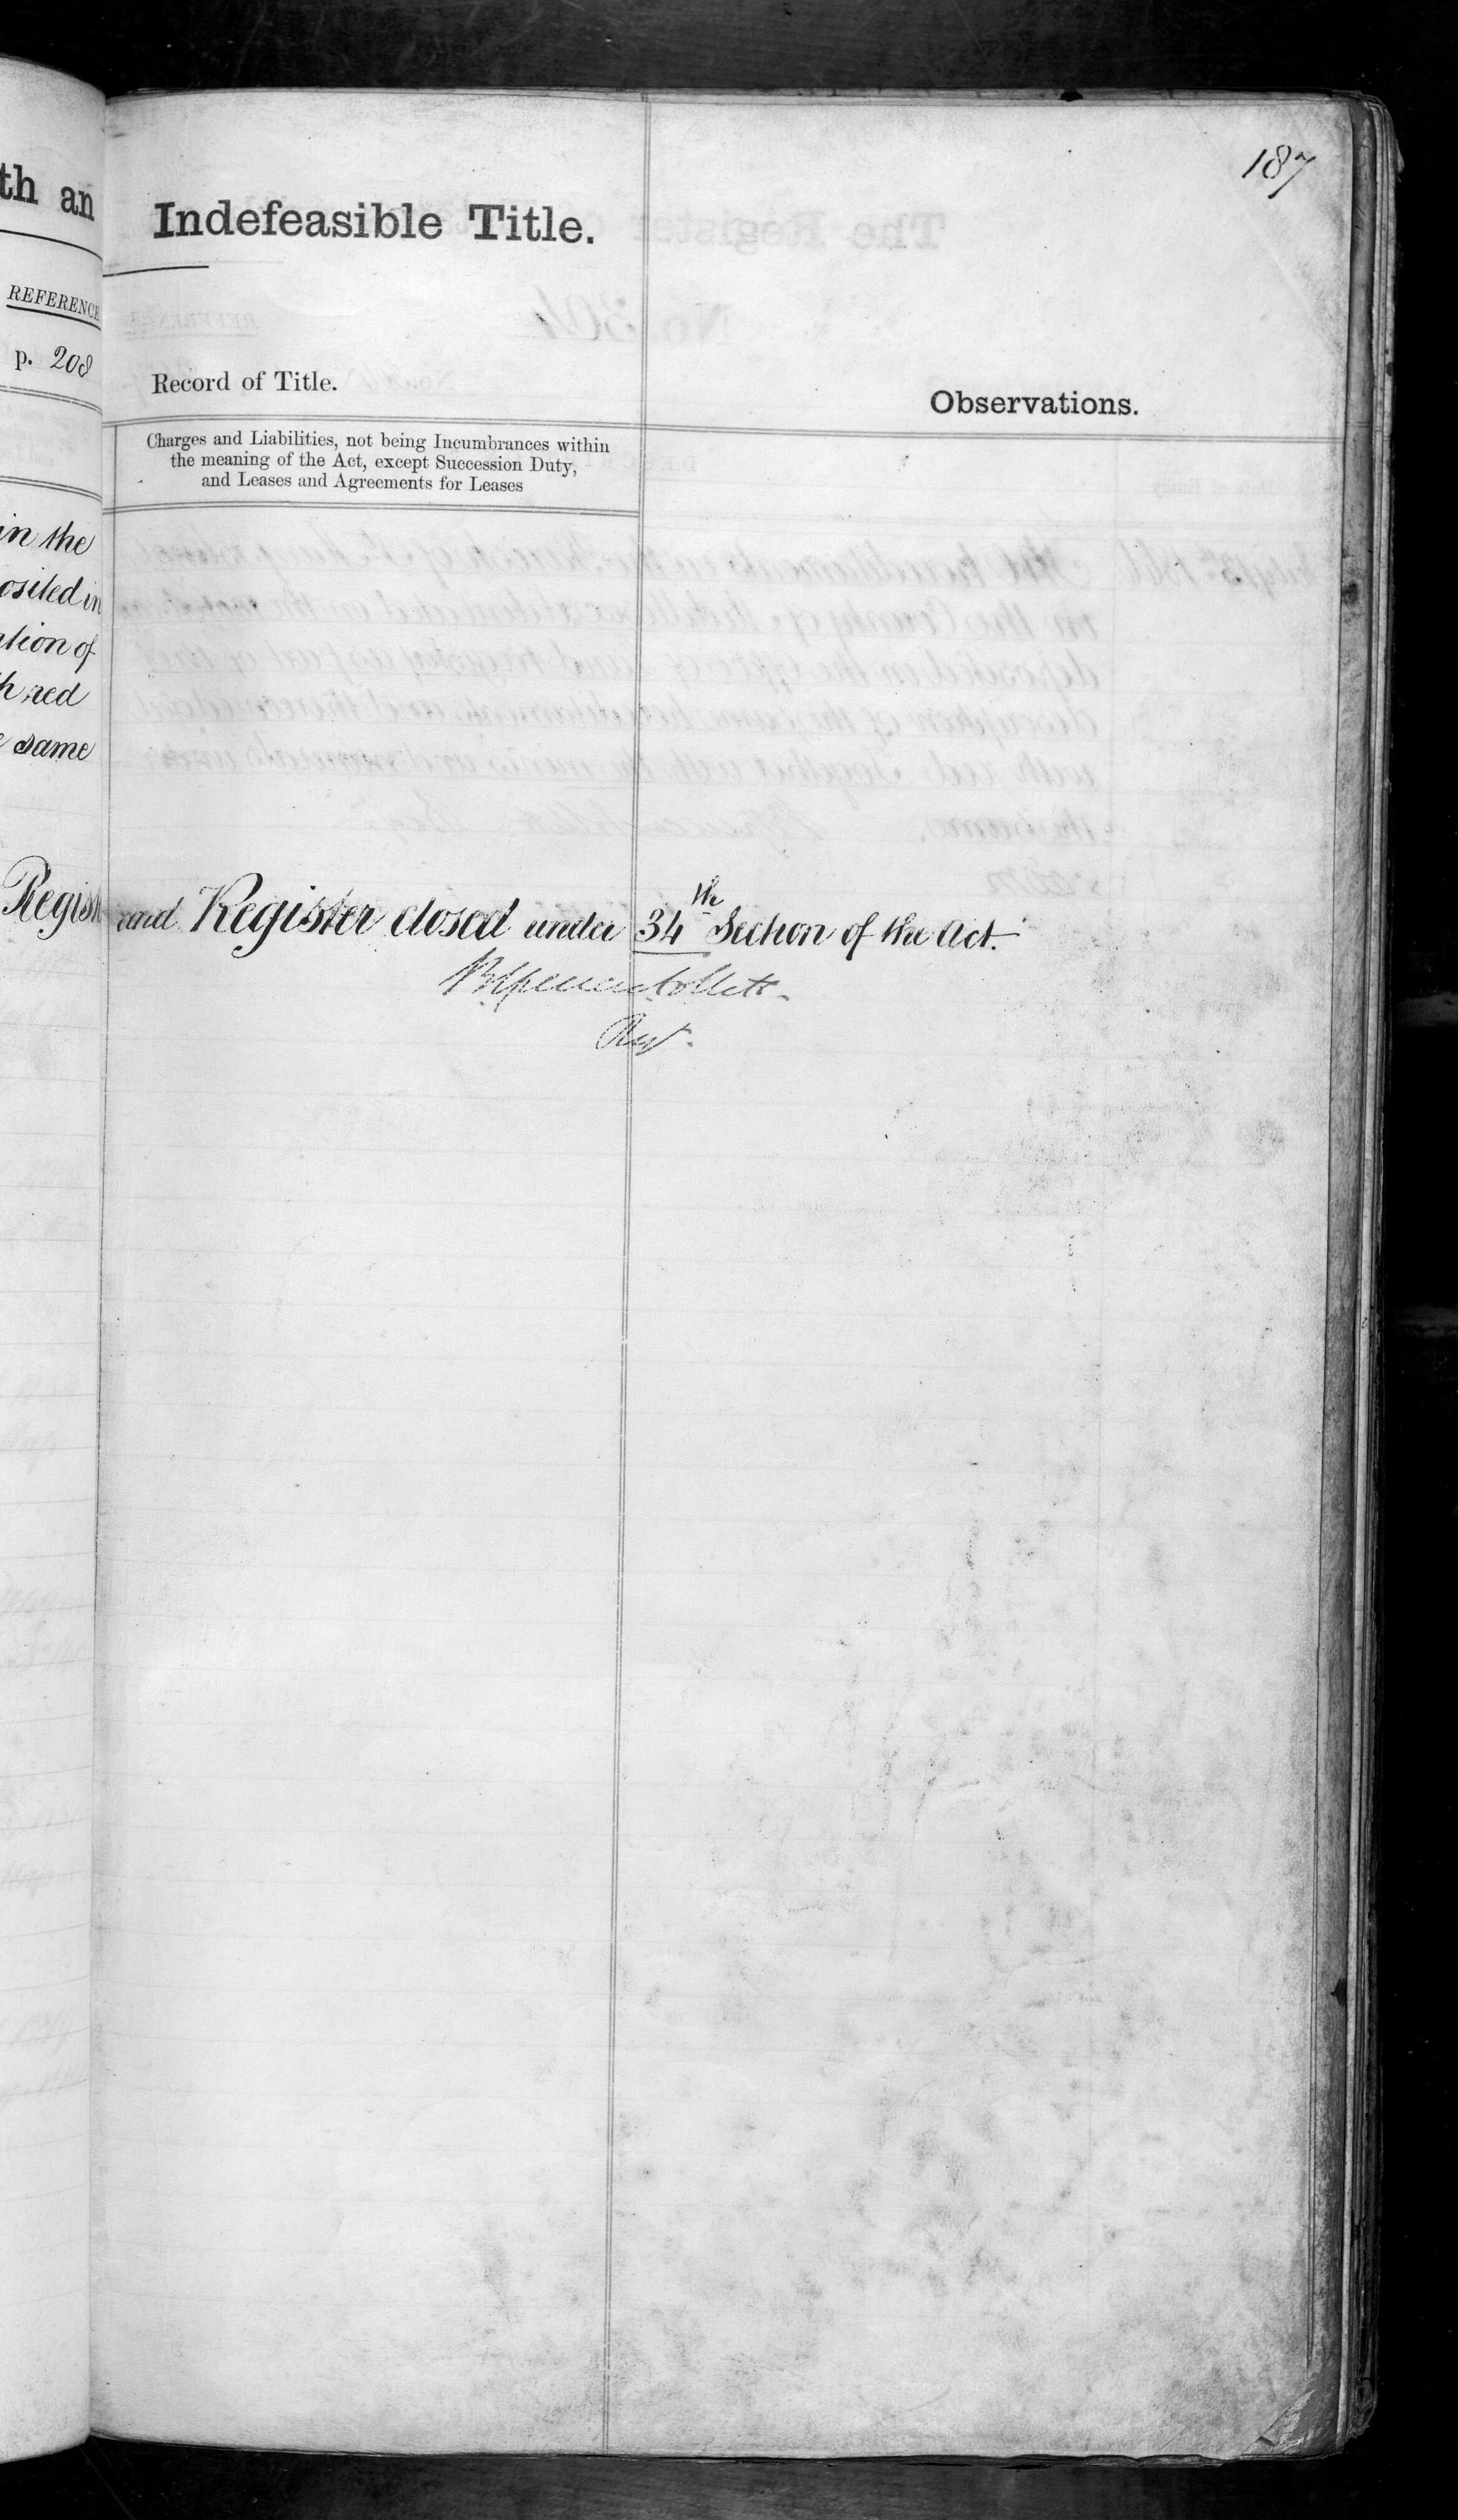 187
th an
Indefeasible Title.
REFERENCE
p. 208
Record of Title.
Observations.
Charges and Liabilities, not being Incumbrances within
the meaning of the Act, except Succession Duty,
and Leases and Agreements for Leases
in the
osited in
ation of
h red
same
Regist and Register closed under 34th Section of the Act.